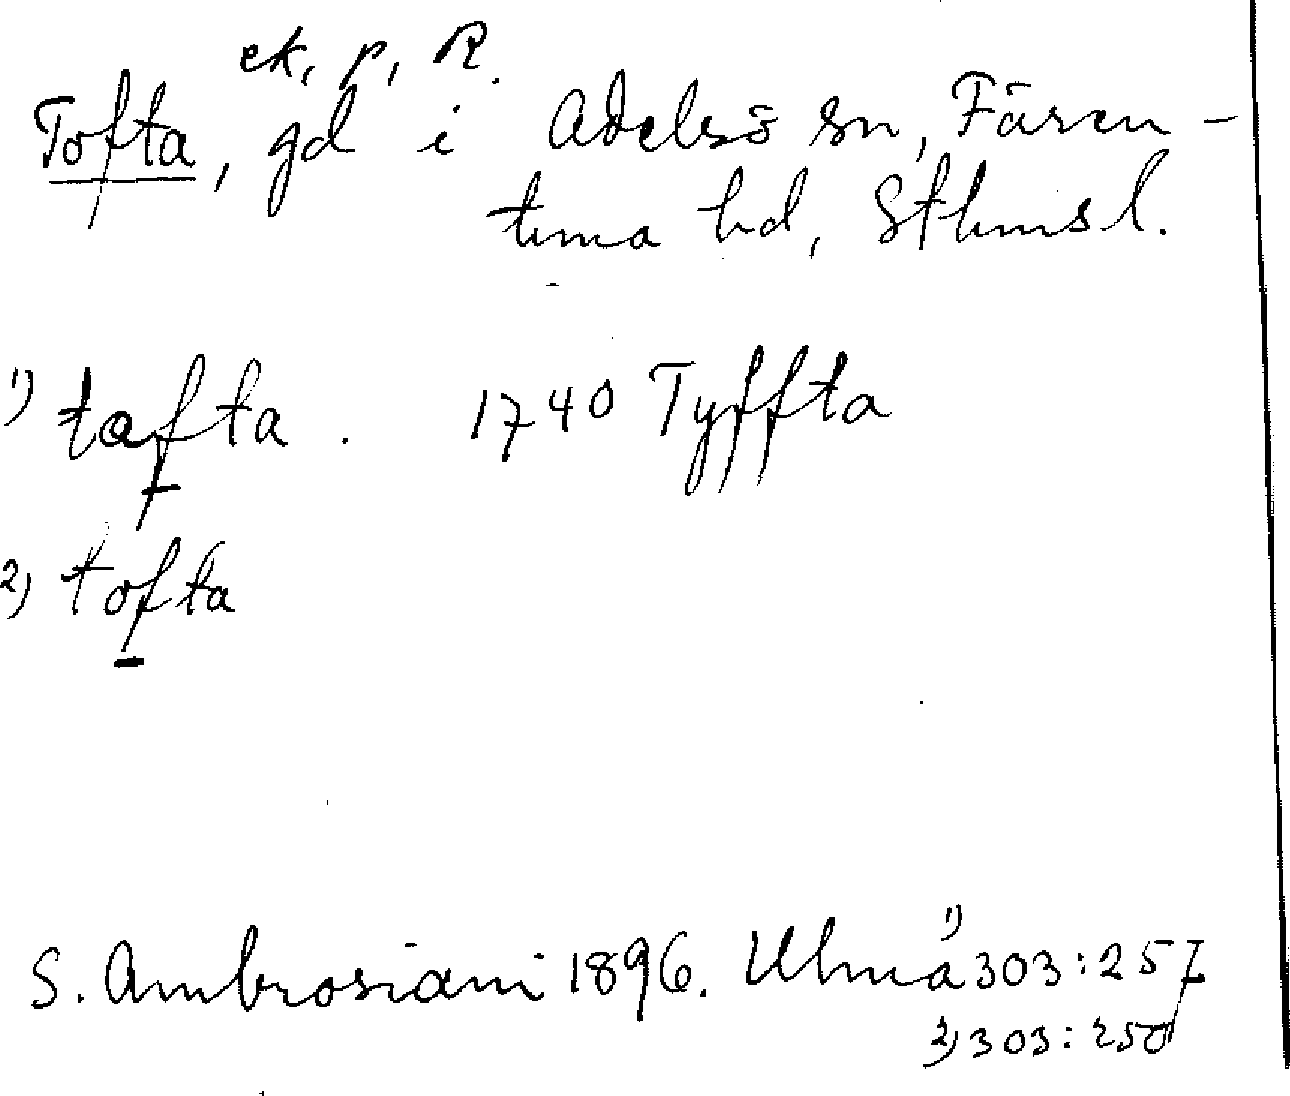 ek, p, R.
Tofta, gd i Adelsö sn, Fären-
tuna hd, Sthmsl.
1) tafta. 1740 Tyffta
2) tofta
S. Ambrosiani 1896. Ulma 1) 303:257
2) 303:250